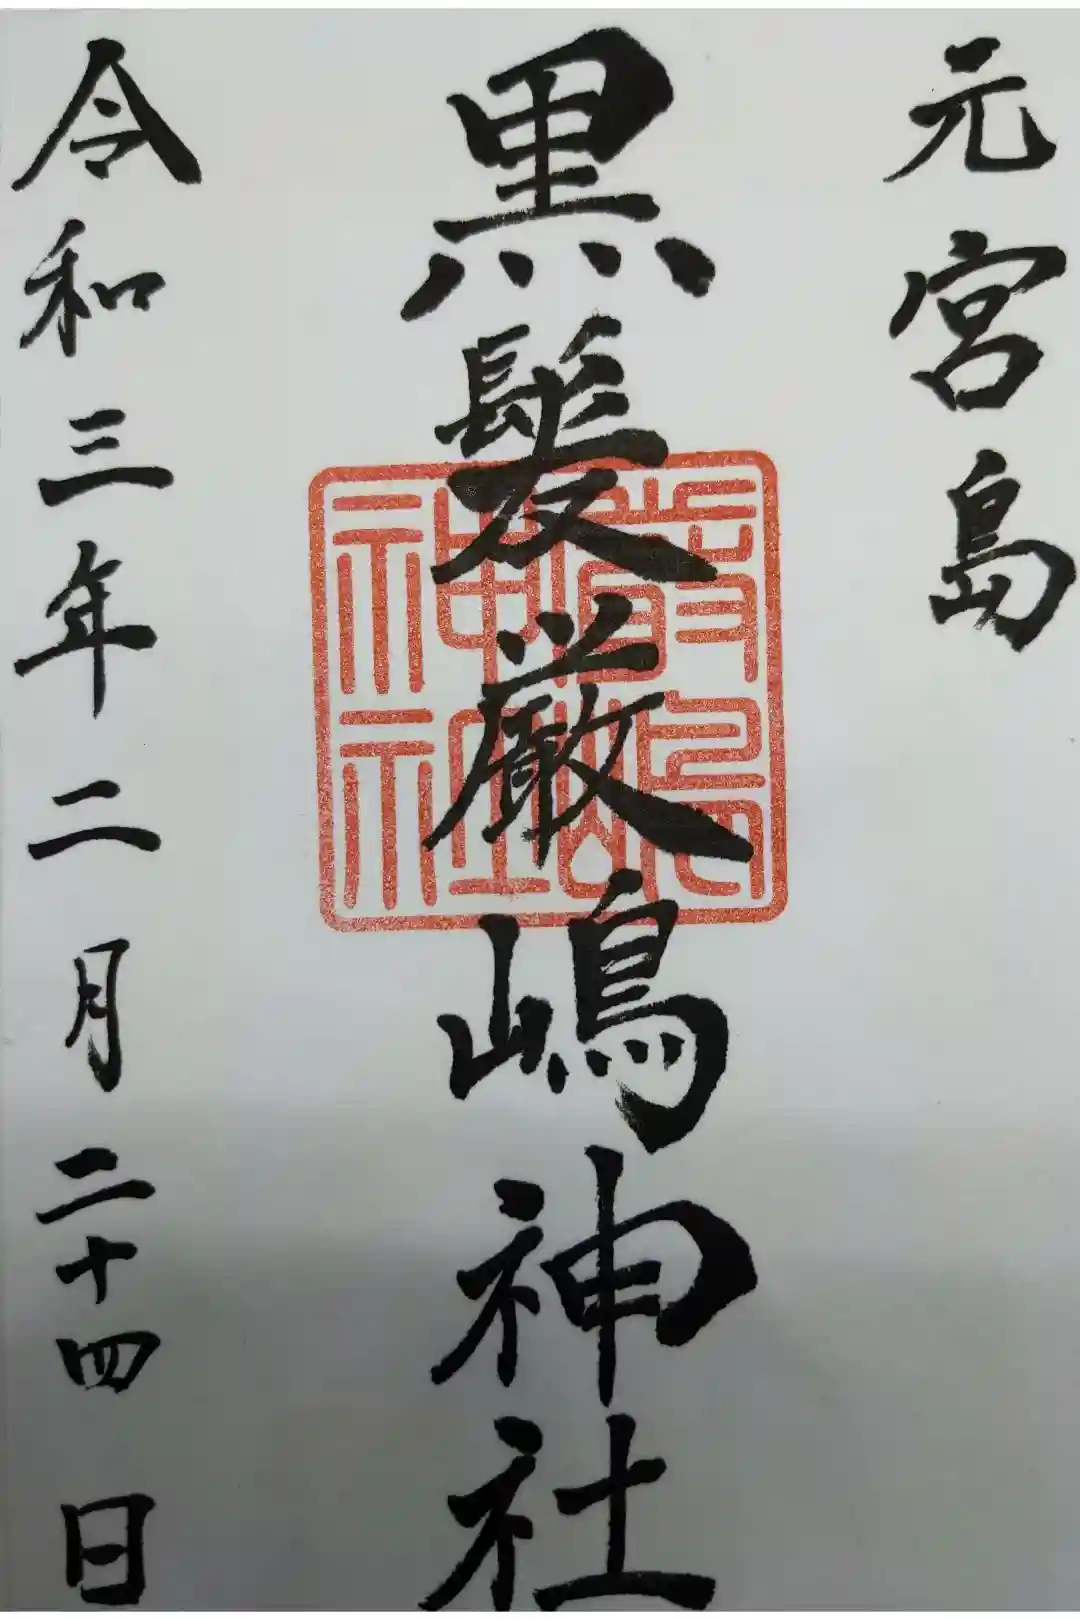 元宮島
黒髪厳嶋神社
令和三年二月二十四日
厳嶋
神社